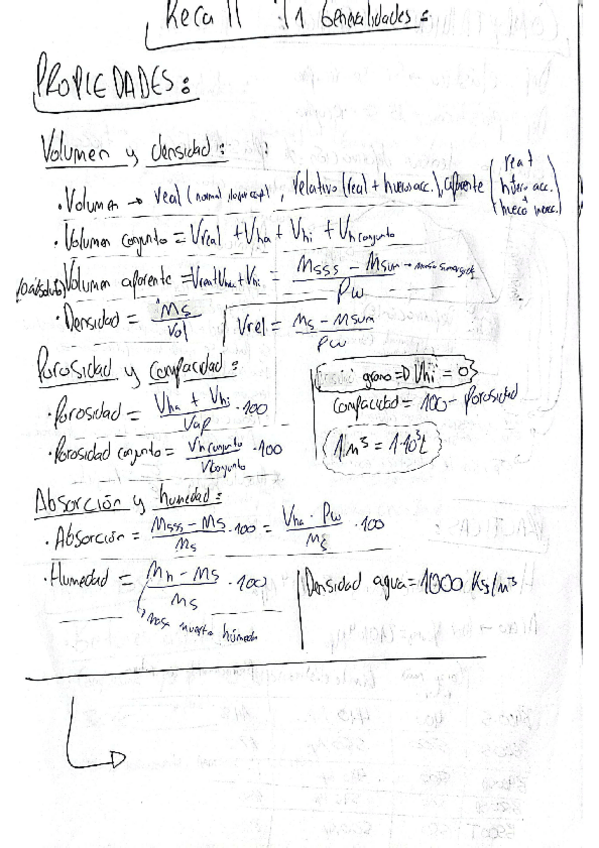 Recall T1 Generalidades:
PROPIEDADES:
Volumen y densidad:
· Volumen → real (normal, ), relativo (real + hueco acc.), aparente (real + hueco acc. + hueco inacc.)
· Volumen conjunto = Vreal + Vha + Vhi + Vh conjunto
(o absoluto) Volumen aparente = Vreal + Vha + Vhi = Msss - Msum → masa sumergida / ρw
· Densidad = Ms / Vol
Vrel = Ms - Msum / ρw
Porosidad y compacidad:
· Porosidad = Vha + Vhi / Vap · 100
grano ⇒ Vhi = 0
Compacidad = 100 - Porosidad
· Porosidad conjunto = Vh conjunto / Vconjunto · 100
1 m³ = 1·10³ L
Absorción y humedad:
· Absorción = Msss - Ms / Ms · 100 = Vha · ρw / Ms · 100
· Humedad = Mh - Ms / Ms · 100
→ masa muestra húmeda
Densidad agua = 1000 Kg/m³